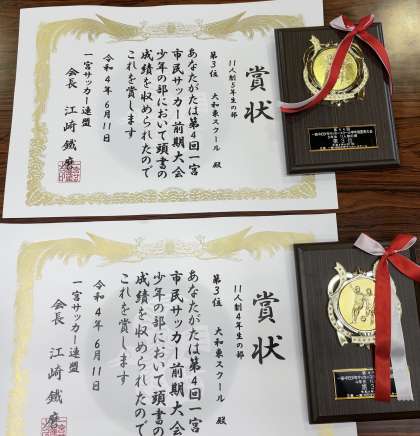 賞状
11人制5年生の部
第3位 大和東スクール 殿
あなたがたは第4回一宮
市民サッカー前期大会
少年の部において頭書の
成績を収められたので
これを賞します
令和4年6月11日
一宮サッカー連盟
会長 江崎鐵磨
賞状
11人制4年生の部
第3位 大和東スクール 殿
あなたがたは第4回一宮
市民サッカー前期大会
少年の部において頭書の
成績を収められたので
これを賞します
令和4年6月11日
一宮サッカー連盟
会長 江崎鐵磨